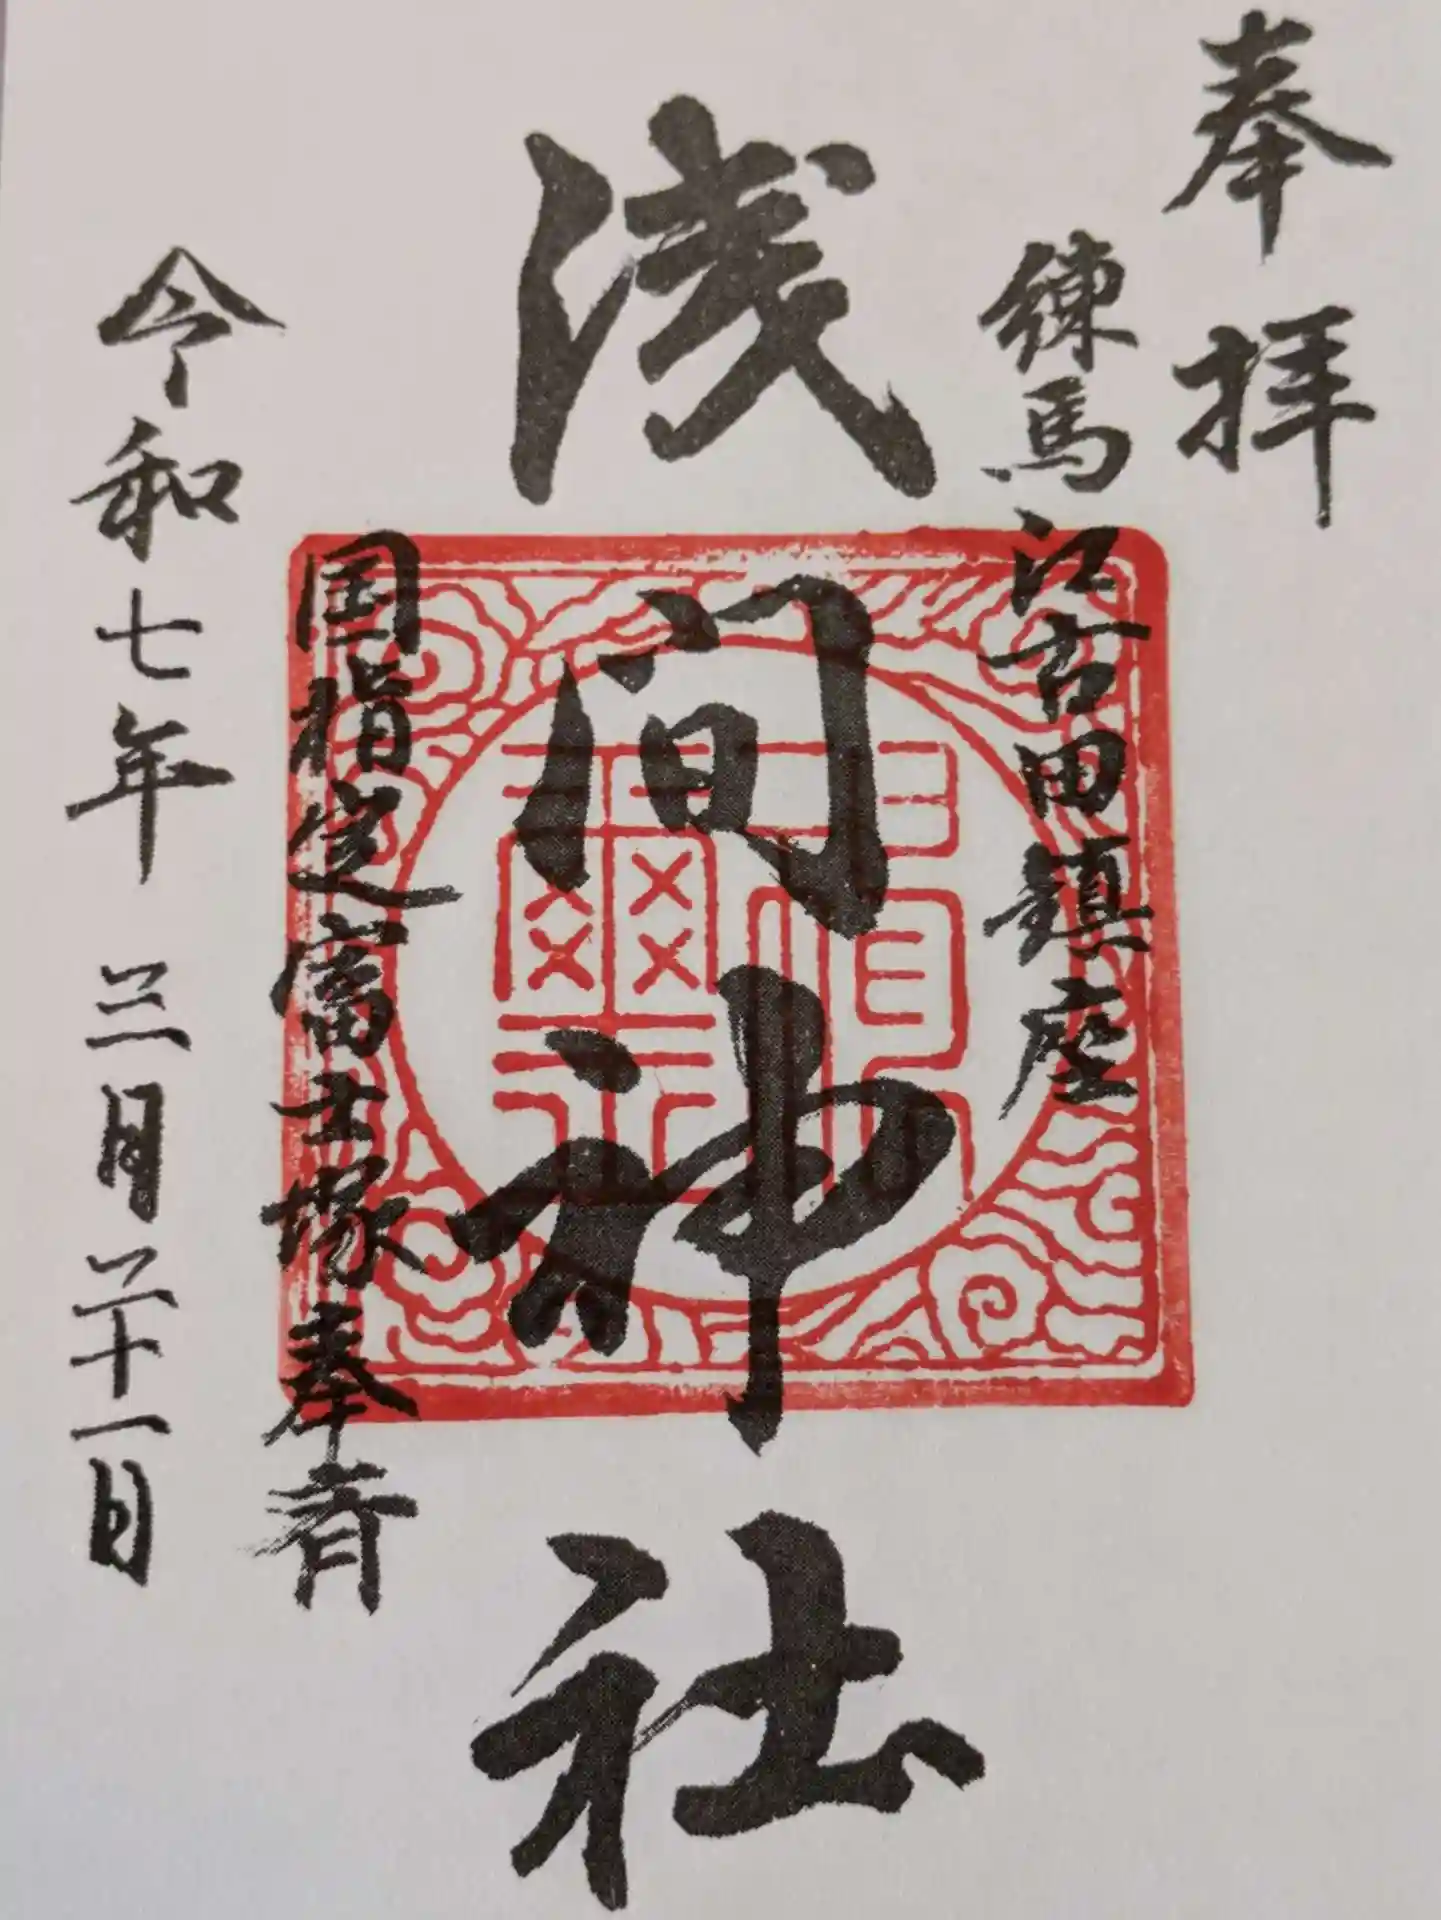 奉拝
練馬江古田鎮座
浅間神社
国指定富士塚奉斉
令和七年三月二十一日